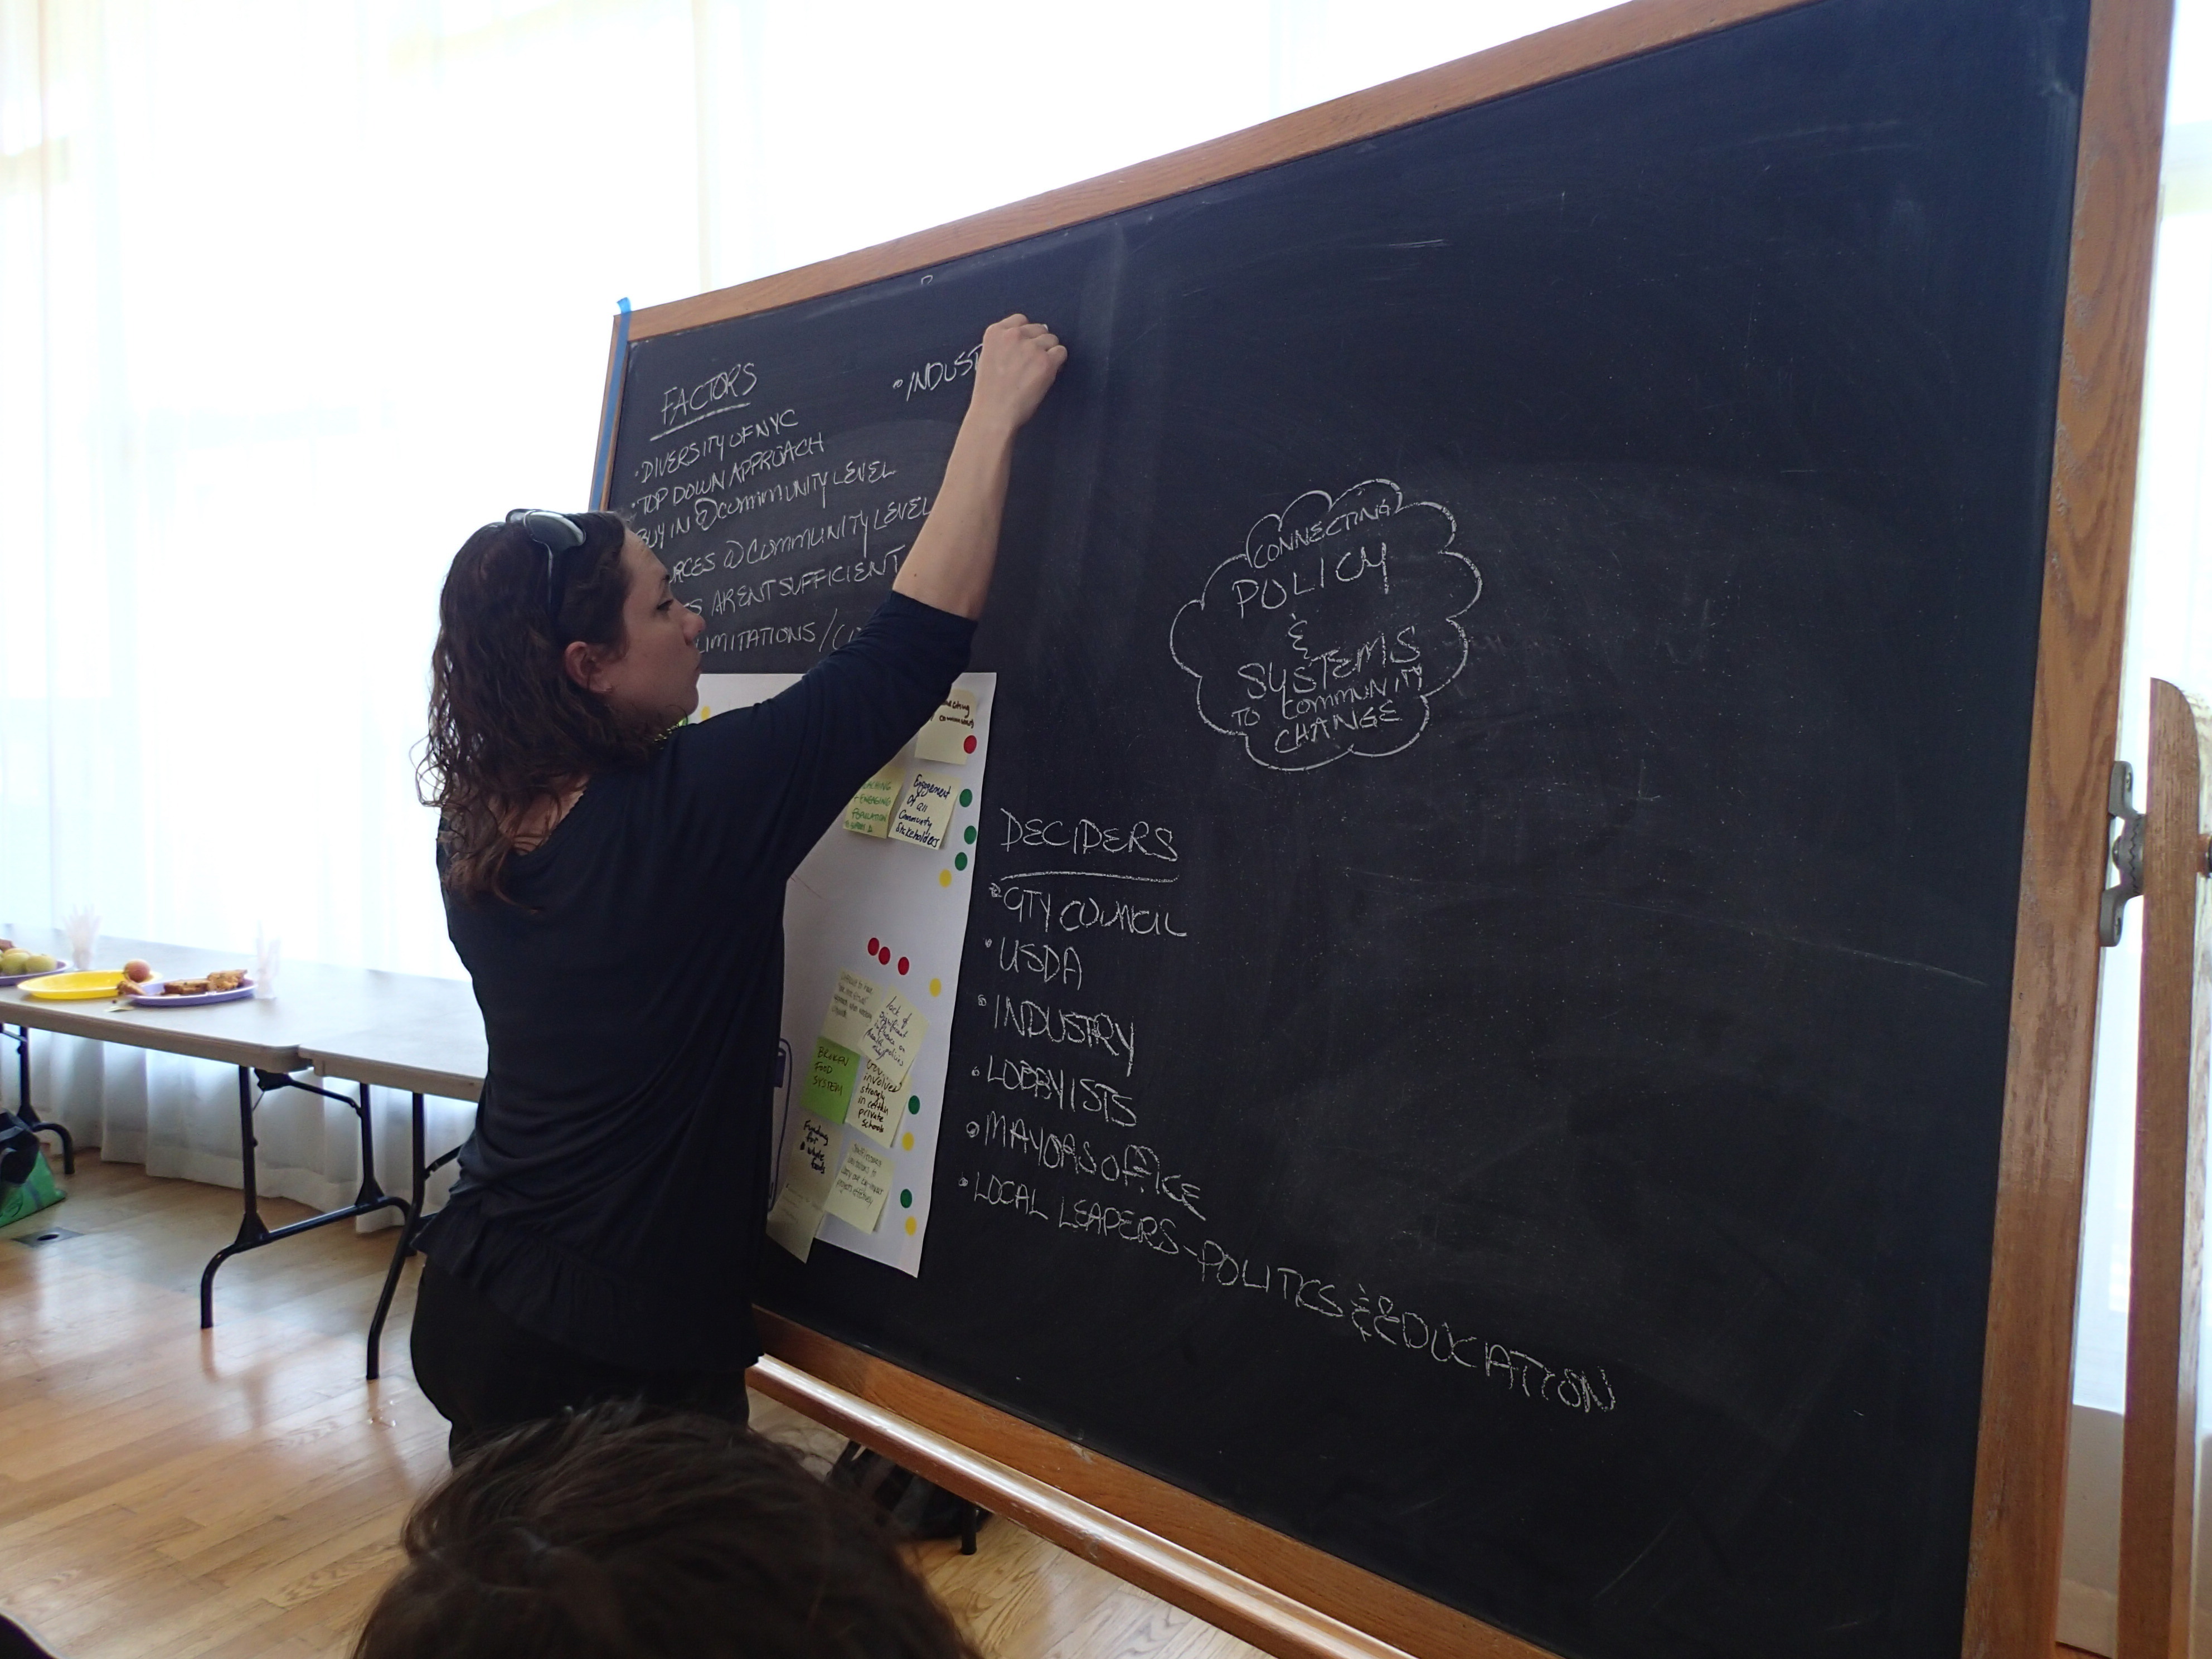 FACTORS
• DIVERSITY OF NYC
• TOP DOWN APPROACH
BUY IN @ COMMUNITY LEVEL
RCES @ COMMUNITY LEVEL
S ARENT SUFFICIENT
LIMITATIONS /
• INDUST
CONNECTING
POLICY
&
SYSTEMS
TO COMMUNITY
CHANGE
Engagement
of all
Community
Stakeholders
ENGAGING
POPULATION
BROKEN
FOOD
SYSTEM
lack of
significant
influence on
health policies
involved
strongly
in certain
private
schools
Funding
for
whole
foods
DECIDERS
• CITY COUNCIL
• USDA
• INDUSTRY
• LOBBYISTS
• MAYORS OFFICE
• LOCAL LEADERS - POLITICS & EDUCATION